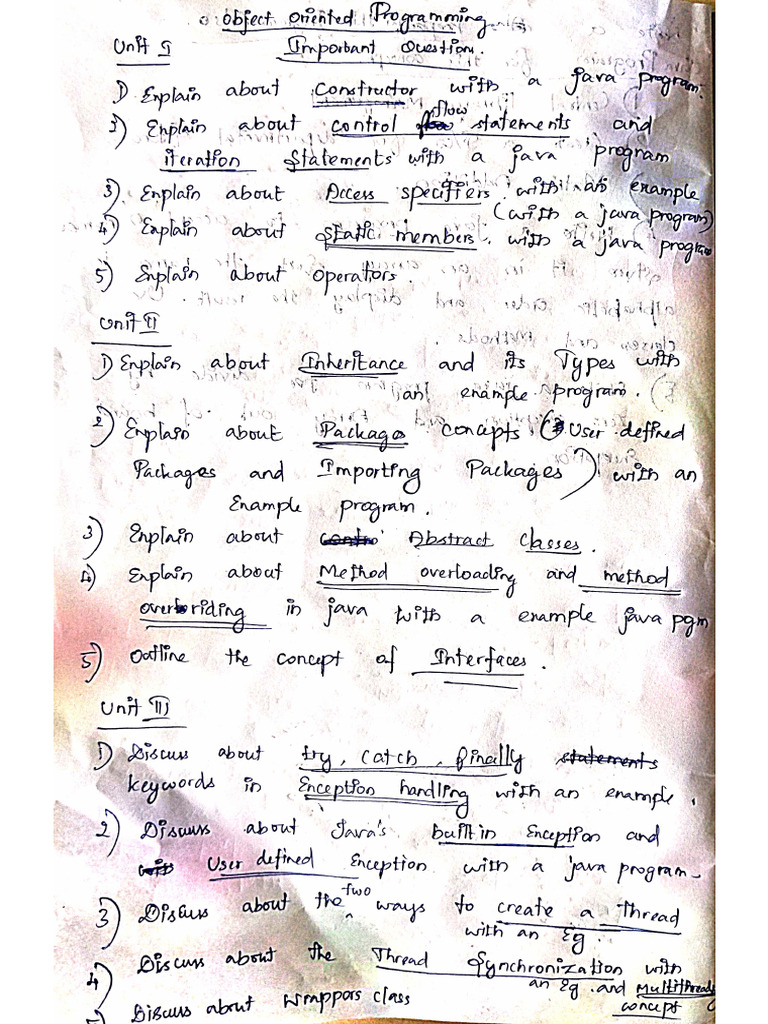 Object Oriented Programming
Unit I Important Question.
1) Explain about Constructor with a java program.
2) Explain about control flow statements and
iteration statements with a java program
3) Explain about Access specifiers with an example
(with a java program)
4) Explain about static members. with a java program
5) Explain about operators.
Unit II
1) Explain about Inheritance and its Types with
an example program.
2) Explain about Packages concepts (User defined
Packages and Importing Packages) with an
Example program.
3) Explain about Abstract classes.
4) Explain about Method overloading and method
overriding in java with a example java pgm
5) Outline the concept of Interfaces.
Unit III
1) Discuss about try, catch, finally statements
keywords in Exception handling with an example.
2) Discuss about Java's built in Exception and
User defined Exception with a java program.
3) Discuss about the two ways to create a Thread
with an Eg.
4) Discuss about the Thread Synchronization with
an Eg. and Multithread
concept
5 Discuss about Wrappors class